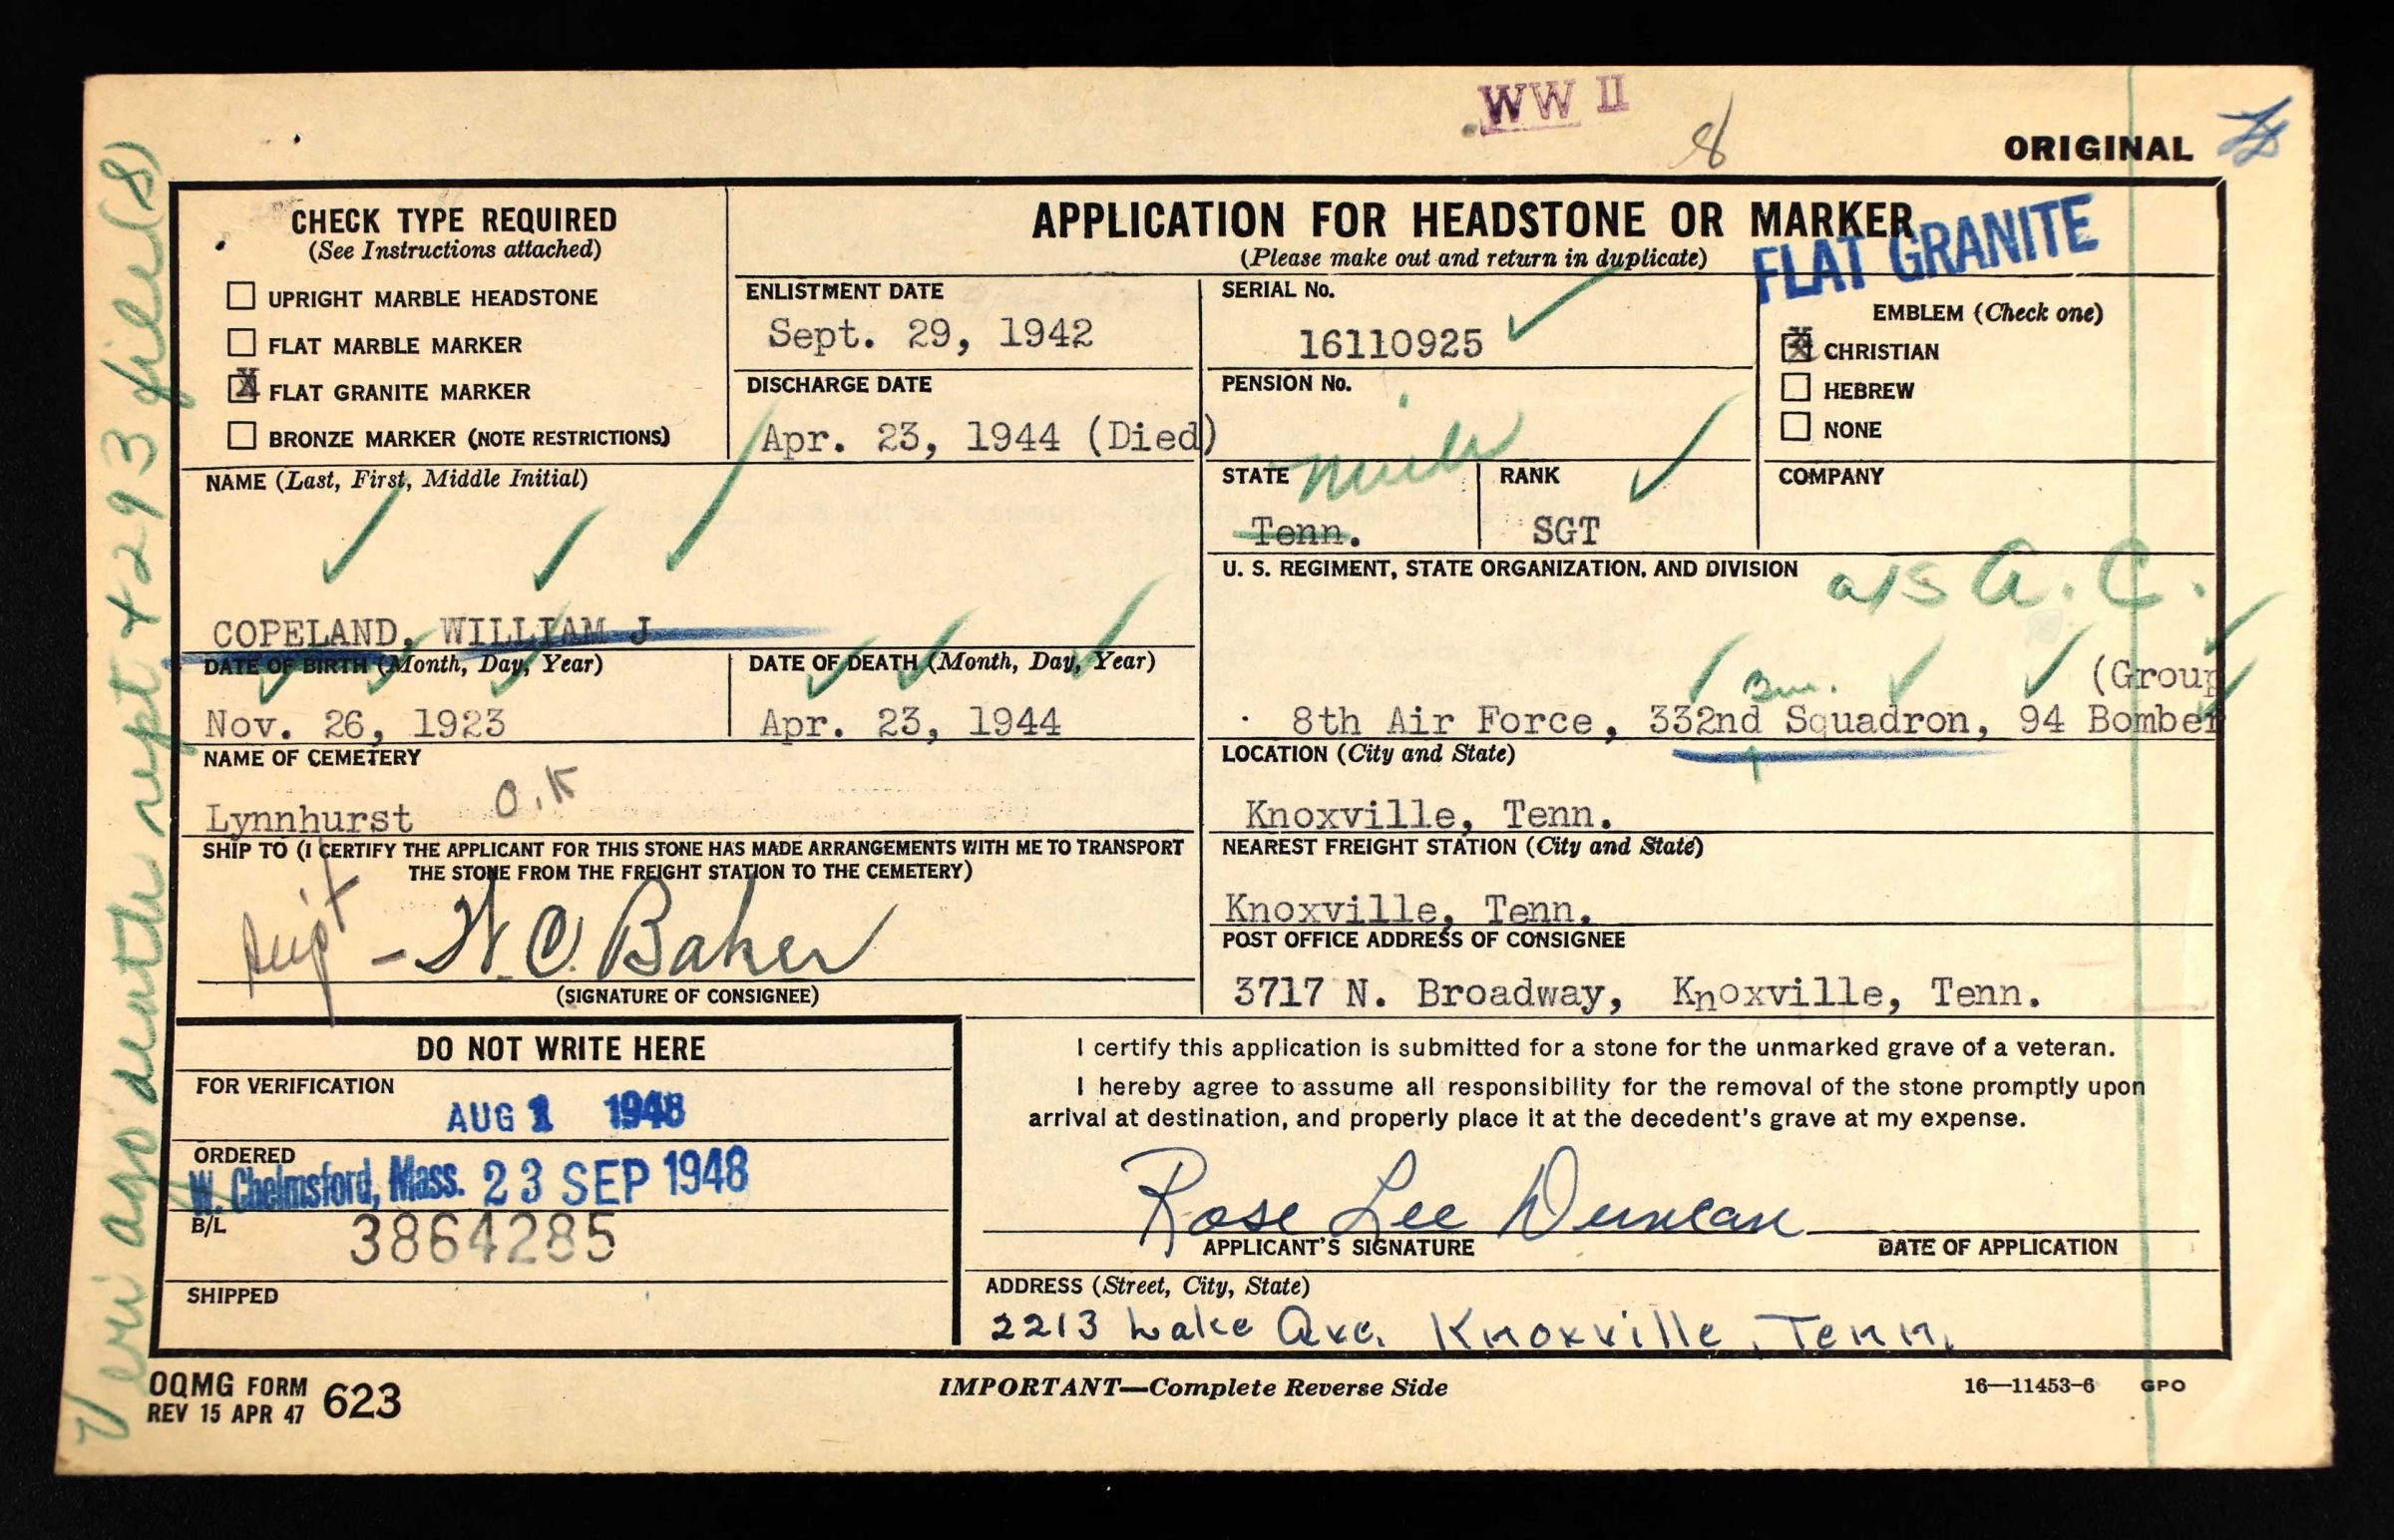 WW II
8
ORIGINAL
CHECK TYPE REQUIRED
(See Instructions attached)
UPRIGHT MARBLE HEADSTONE
FLAT MARBLE MARKER
X FLAT GRANITE MARKER
BRONZE MARKER (NOTE RESTRICTIONS)
APPLICATION FOR HEADSTONE OR MARKER
(Please make out and return in duplicate)
FLAT GRANITE
ENLISTMENT DATE
Sept. 29, 1942
DISCHARGE DATE
Apr. 23, 1944 (Died)
SERIAL No.
16110925
PENSION No.
EMBLEM (Check one)
X CHRISTIAN
HEBREW
NONE
STATE
Mich
Tenn.
RANK
SGT
COMPANY
NAME (Last, First, Middle Initial)
COPELAND, WILLIAM J
U. S. REGIMENT, STATE ORGANIZATION, AND DIVISION
a/s A.C.
(Group
Bm.
8th Air Force, 332nd Squadron, 94 Bomber
DATE OF BIRTH (Month, Day, Year)
Nov. 26, 1923
DATE OF DEATH (Month, Day, Year)
Apr. 23, 1944
NAME OF CEMETERY
Lynnhurst O.K
LOCATION (City and State)
Knoxville, Tenn.
SHIP TO (I CERTIFY THE APPLICANT FOR THIS STONE HAS MADE ARRANGEMENTS WITH ME TO TRANSPORT
THE STONE FROM THE FREIGHT STATION TO THE CEMETERY)
Supt - W. C. Baker
(SIGNATURE OF CONSIGNEE)
NEAREST FREIGHT STATION (City and State)
Knoxville, Tenn.
POST OFFICE ADDRESS OF CONSIGNEE
3717 N. Broadway, Knoxville, Tenn.
DO NOT WRITE HERE
FOR VERIFICATION
AUG 1 1948
ORDERED
W. Chelmsford, Mass. 23 SEP 1948
B/L
3864285
SHIPPED
I certify this application is submitted for a stone for the unmarked grave of a veteran.
I hereby agree to assume all responsibility for the removal of the stone promptly upon
arrival at destination, and properly place it at the decedent's grave at my expense.
Rose Lee Duncan
APPLICANT'S SIGNATURE
DATE OF APPLICATION
ADDRESS (Street, City, State)
2213 Lake Ave. Knoxville, Tenn.
OQMG FORM
REV 15 APR 47 623
IMPORTANT—Complete Reverse Side
16—11453-6 GPO
Veri ago death rept + 293 file (8)